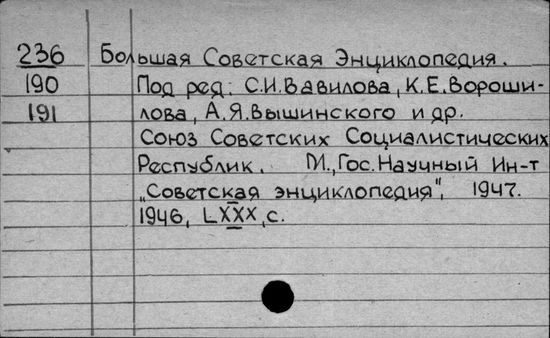 236 Большая Советская Энциклопедия.
190 Под ред: С.И.Вавилова, К.Е.Вороши-
191 лова, А.Я.Вышинского и др.
Союз Советских Социалистических
Республик. М., Гос. Научный Ин-т
„Советская энциклопедия", 1947.
1946, LXXX, с.